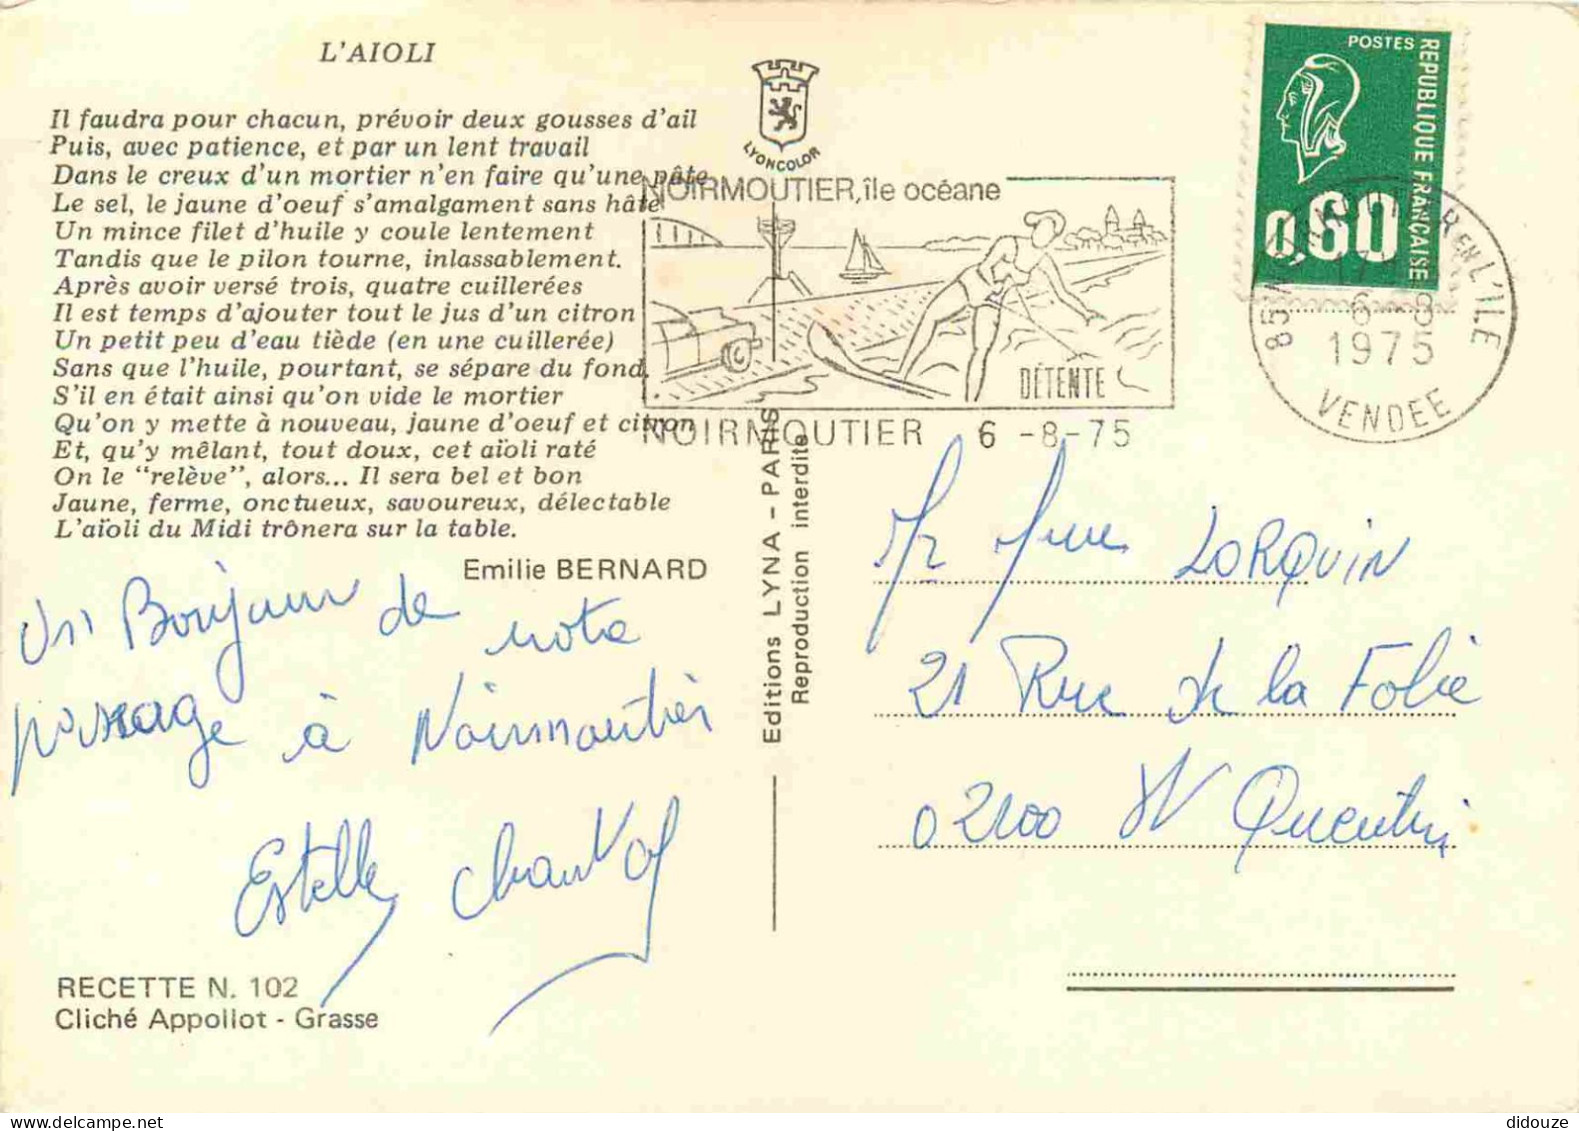 L'AIOLI
Il faudra pour chacun, prévoir deux gousses d'ail
Puis, avec patience, et par un lent travail
Dans le creux d'un mortier n'en faire qu'une pâte
Le sel, le jaune d'oeuf s'amalgament sans hâte
Un mince filet d'huile y coule lentement
Tandis que le pilon tourne, inlassablement.
Après avoir versé trois, quatre cuillerées
Il est temps d'ajouter tout le jus d'un citron
Un petit peu d'eau tiède (en une cuillerée)
Sans que l'huile, pourtant, se sépare du fond.
S'il en était ainsi qu'on vide le mortier
Qu'on y mette à nouveau, jaune d'oeuf et citron
Et, qu'y mêlant, tout doux, cet aïoli raté
On le "relève", alors... Il sera bel et bon
Jaune, ferme, onctueux, savoureux, délectable
L'aïoli du Midi trônera sur la table.
Emilie BERNARD
Bonjour de
notre
passage à Noirmoutier
Estelle Chantal
RECETTE N. 102
Cliché Appollot - Grasse
LYONCOLOR
NOIRMOUTIER, île océane
DÉTENTE
NOIRMOUTIER 6 -8-75
Editions LYNA - PARIS
Reproduction interdite
POSTES
REPUBLIQUE FRANÇAISE
0,60
85 NOIRMOUTIER EN L'ILE
6 -8
1975
VENDEE
Mr Mme LORQUIN
21 Rue de la Folie
02100 St Quentin
didouze